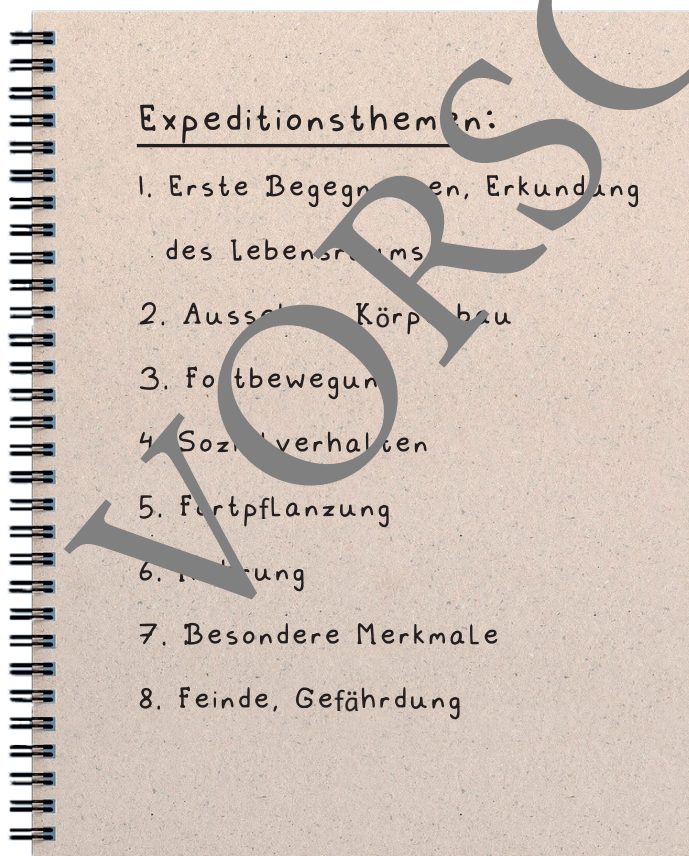 Expeditionsthemen:
1. Erste Begegnungen, Erkundung
des Lebensraums
2. Aussehen, Körperbau
3. Fortbewegung
4. Sozialverhalten
5. Fortpflanzung
6. Nahrung
7. Besondere Merkmale
8. Feinde, Gefährdung